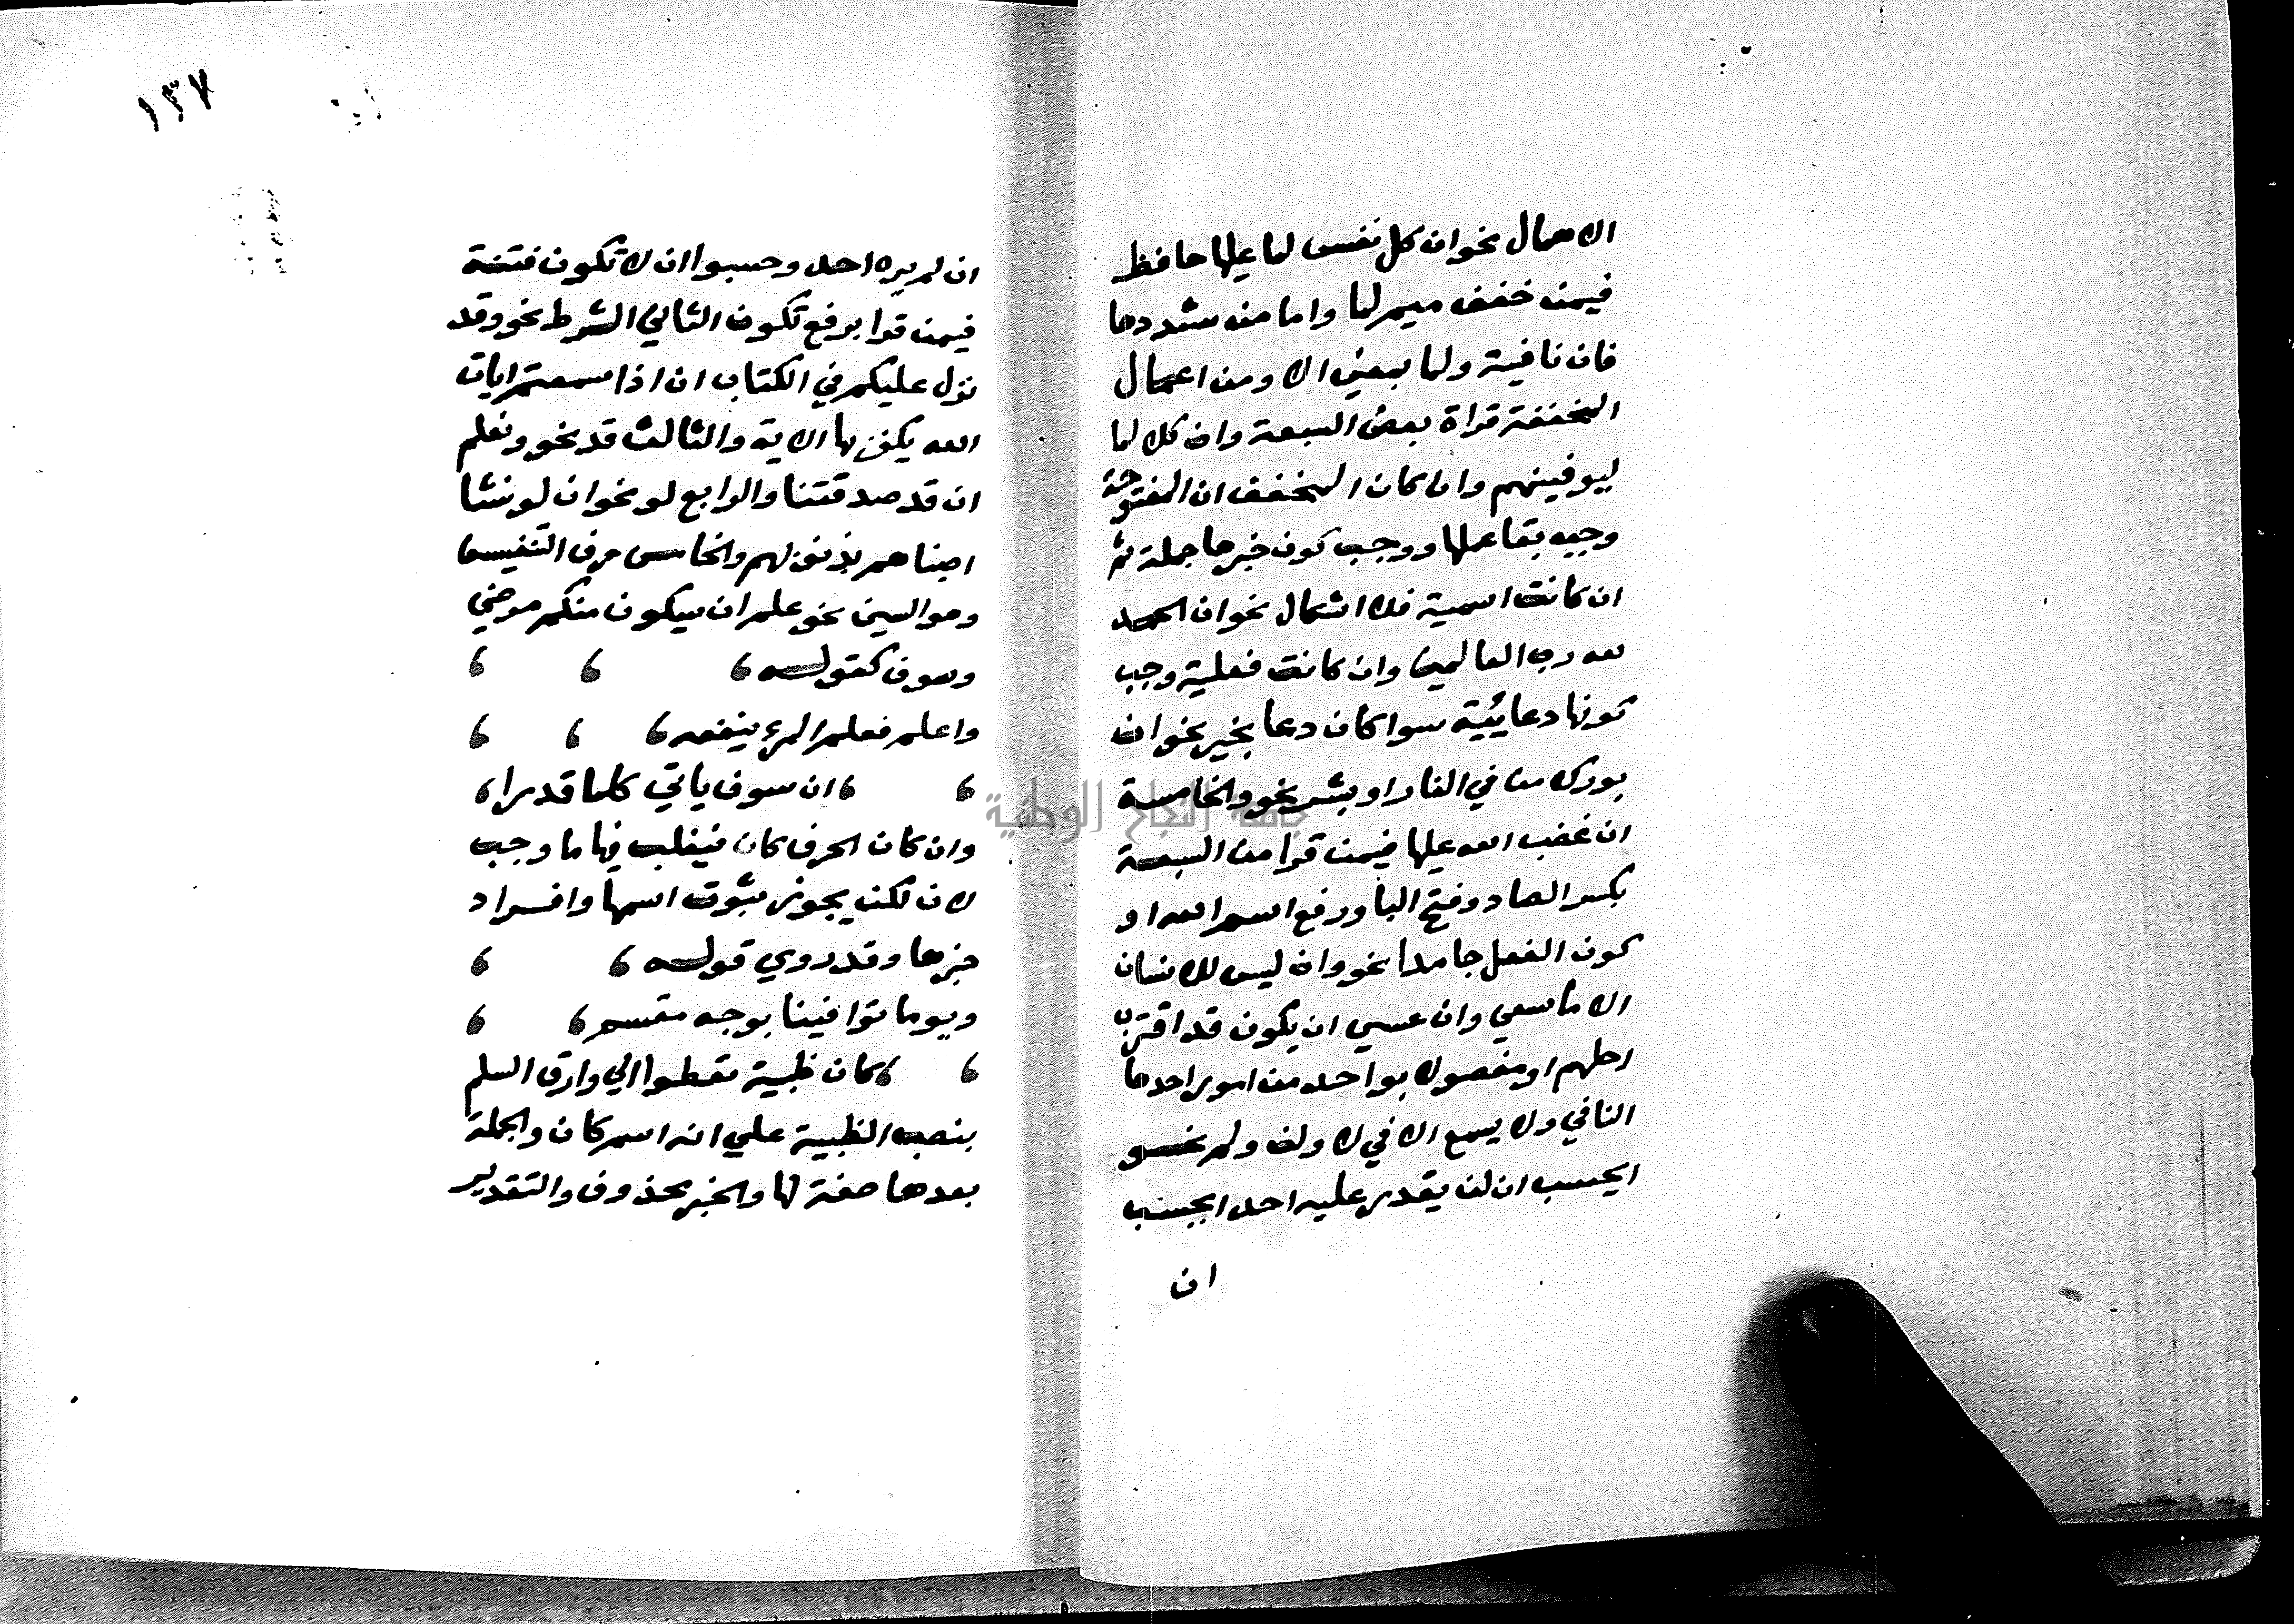 الاهمال نحو ان كل نفس لما عليها حافظ
فيمن خفف ميم لما واما من شددها
فان نافية ولما بمعني الا ومن اعمال
المخففة قراة بعض السبعة وان كلا لما
ليوفينهم وان كان المخفف ان المفتوحة
وجب بقا عملها ووجب كون خبرها جملة ثم
ان كانت اسمية فلا اشكال نحو ان الحمد
لله رب العالمين وان كانت فعلية وجب
كونها دعائية سوا كان دعا بخير نحو ان
بورك من في النار او بشر نحو والخامسة
ان غضب الله عليها فيمن قرا من السبعة
بكسر الضاد وفتح البا ورفع اسم الله او
كون الفعل جامدا نحو وان ليس للانسان
الا ما سعي وان عسي ان يكون قد اقترب
اجلهم او مفصولا بواحد من امور احدها
النافي ولا يسمع الا في لا ولن ولم نحو
ايحسب ان لن يقدر عليه احد ايحسب
ان
١٣٧
ان لم يره احد وحسبوا ان لا تكون فتنة
فيمن قرا برفع تكون الثاني الشرط نحو وقد
نزل عليكم في الكتاب ان اذا سمعتم ايات
الله يكفر بها الاية والثالث قد نحو ونعلم
ان قد صدقتنا والرابع لو نحو ان لو نشا
اصبناهم بذنوبهم والخامس حرف التنفيس
وهو السين نحو علم ان سيكون منكم مرضي
وسوف كقوله
واعلم فعلم المرء ينفعه
ان سوف ياتي كلما قدرا
وان كان الحرف كان فيغلب فيها ما وجب
لان لكن يجوز ثبوت اسمها وافراد
خبرها وقد روي قوله
ويوما توافينا بوجه مقسم
كان ظبية تعطوا الي وارق السلم
بنصب الظبية علي انه اسم كان والجملة
بعدها صفة لها والخبر محذوف والتقدير
جامعة النجاح الوطنية